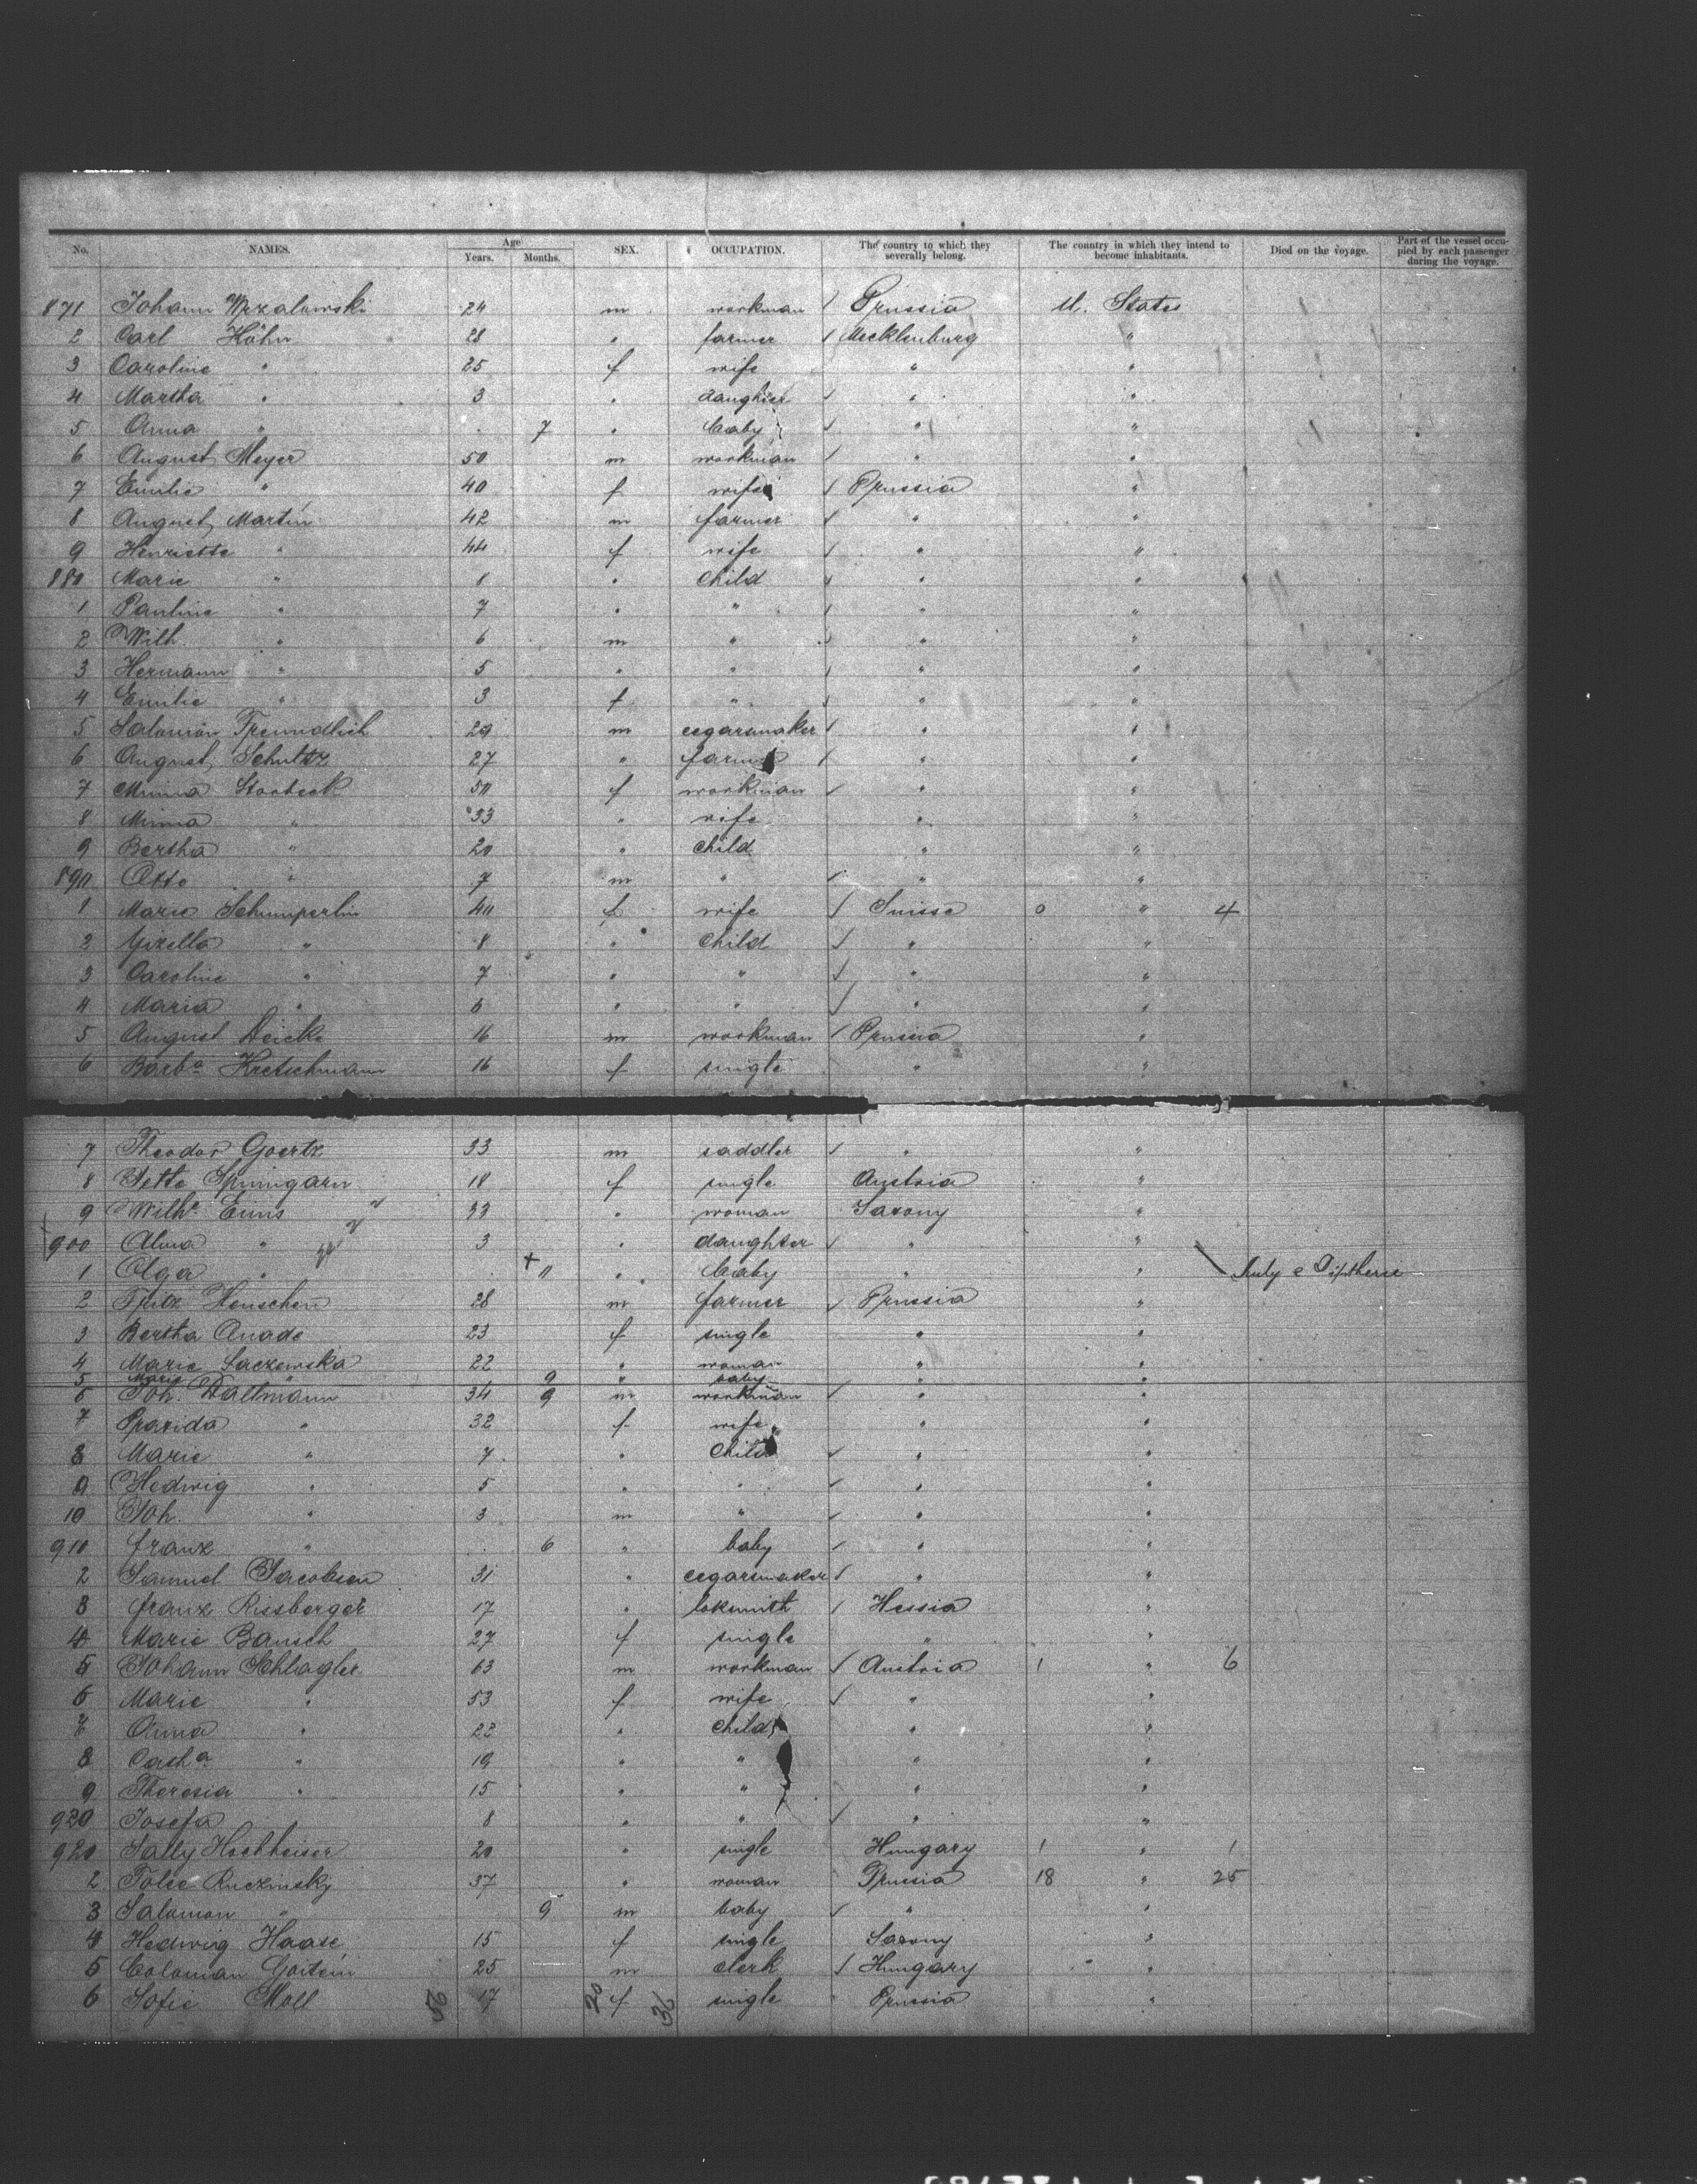 No. NAMES. Age Years. Months. SEX. OCCUPATION. The country to which they severally belong. The country in which they intend to become inhabitants. Died on the voyage. Part of the vessel occupied by each passenger during the voyage.
871 Johann 24 m workman Prussia U. States
2 Carl Höhn 28 " farmer Mecklenburg "
3 Caroline " 25 f wife " "
4 Martha " 3 " daughter " "
5 Anna " 7 " baby " "
6 August Meyer 50 m workman " "
7 Emilie " 40 f wife Prussia "
8 August Martin 42 m farmer " "
9 Henriette " 44 f wife " "
880 Marie " 8 " child " "
1 Pauline " 7 " " " "
2 Wilh. " 6 m " " "
3 Hermann " 5 " " " "
4 Emilie " 3 f " " "
5 Salomon Freundlich 29 m cegarsmaker " "
6 August Schultz 27 " farmer " "
7 Minna Storbeck 50 f workman " "
8 Minna " 33 " wife " "
9 Bertha " 20 " child " "
890 Otto " 7 m " " "
1 Marie Schumperlin 40 f wife Suisse 0 " 4
2 Gizella " 8 " child " "
3 Caroline " 7 " " " "
4 Maria " 6 " " " "
5 August Deicke 16 m workman Prussia "
6 Barba Kretschmann 16 f single " "
7 Theodor Goertz 33 m saddler " "
8 Jette 18 f single Austria "
9 Wilhe Enns 33 " woman Saxony "
900 Alma " 3 " daughter " "
1 Olga " + 11 " baby " " Diptherie
2 Fritz Henschen 28 m farmer Prussia "
3 Bertha Anade 23 f single " "
4 Marie Saczewska 22 " woman " "
5 Marie 9 " baby " "
6 Joh. Daltmann 34 9 m workman " "
7 32 f wife " "
8 Marie " 7 " child " "
9 Hedwig " 5 " " " "
10 Joh. " 3 m " " "
910 franz " 6 " baby " "
2 Samuel Jacobson 31 " cegarsmaker " "
3 franz Rissberger 17 " loksmith Hessia "
4 Marie Bausch 27 f single " "
5 Johann Schlagler 63 m workman Austria 1 " 6
6 Marie " 53 f wife " "
7 Anna " 22 " child " "
8 Catha " 19 " " " "
9 Theresia " 15 " " " "
920 Josefa " 8 " " " "
920 Sally Hochheiser 20 " single Hungary 1 " 1
2 Ruczinsky 37 " woman Prussia 18 " 25
3 Salomon " 9 m baby " "
4 Hedwig Haase 15 f single Saxony "
5 Coloman Goitein 25 m clerk Hungary "
6 Sofie Moll 56 17 20 f 36 single Prussia "